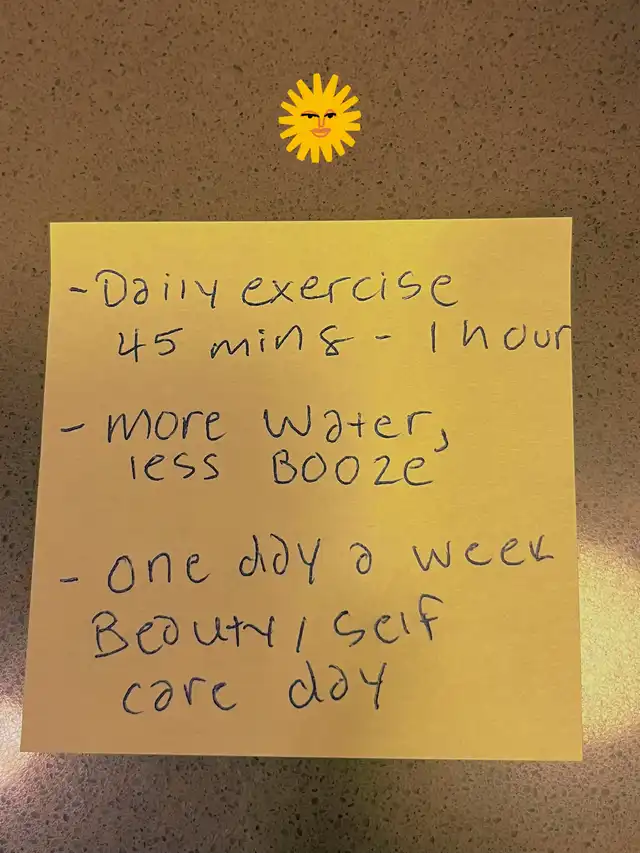 - Daily exercise
45 mins - 1 hour
- more water,
less Booze
- one day a week
Beauty/self
care day